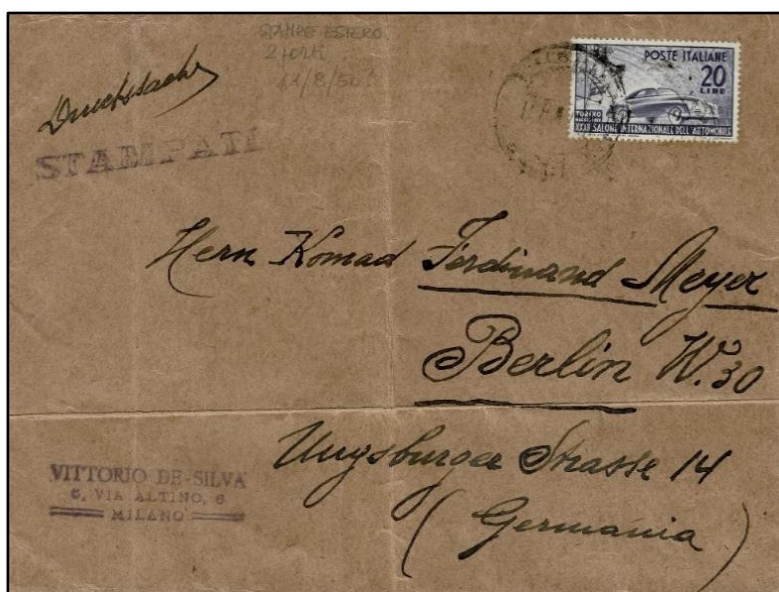 STAMPE ESTERO
2 PORTI
11/8/50
Drucksache
STAMPATI
POSTE ITALIANE
20
LIRE
TORINO
XXXII SALONE INTERNAZIONALE DELL'AUTOMOBILE
Hern Konrad Ferdinand Meyer
Berlin W.30
Augsburger Strasse 14
(Germania)
VITTORIO DE-SILVA
6, VIA ALTINO, 6
MILANO